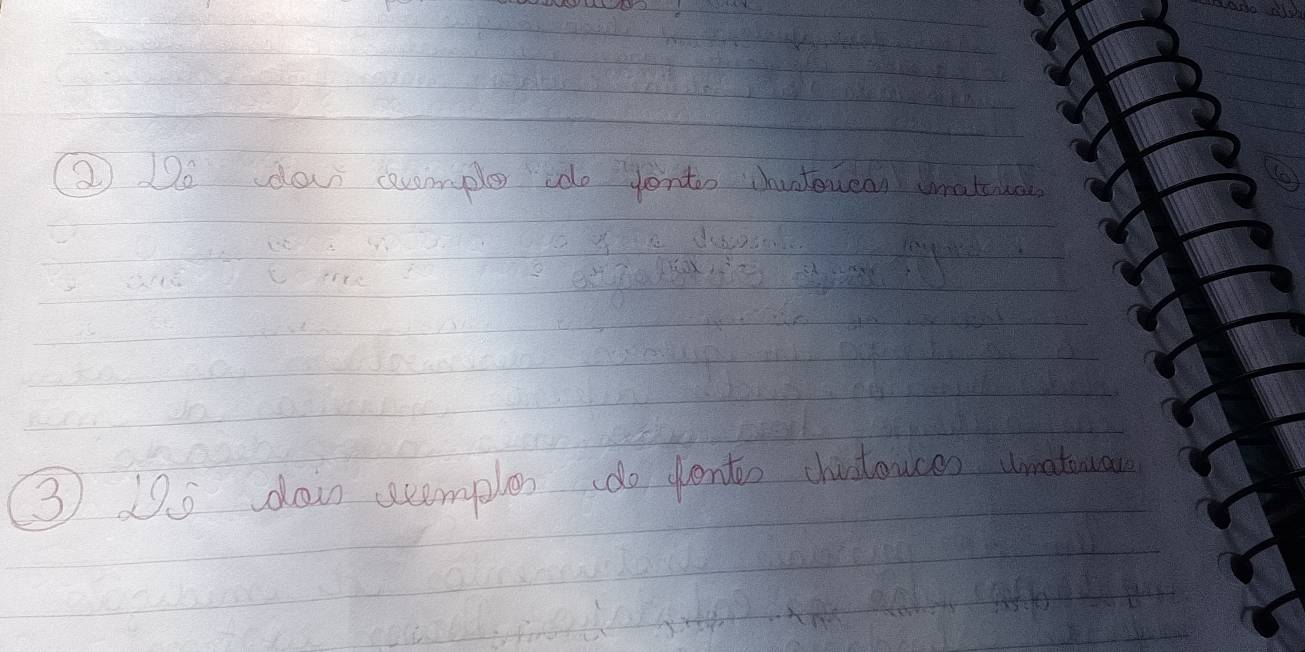 ② Dê dois exemplos de fontes históricas imateriais
③ Dê dois exemplos de fontes históricas imateriais